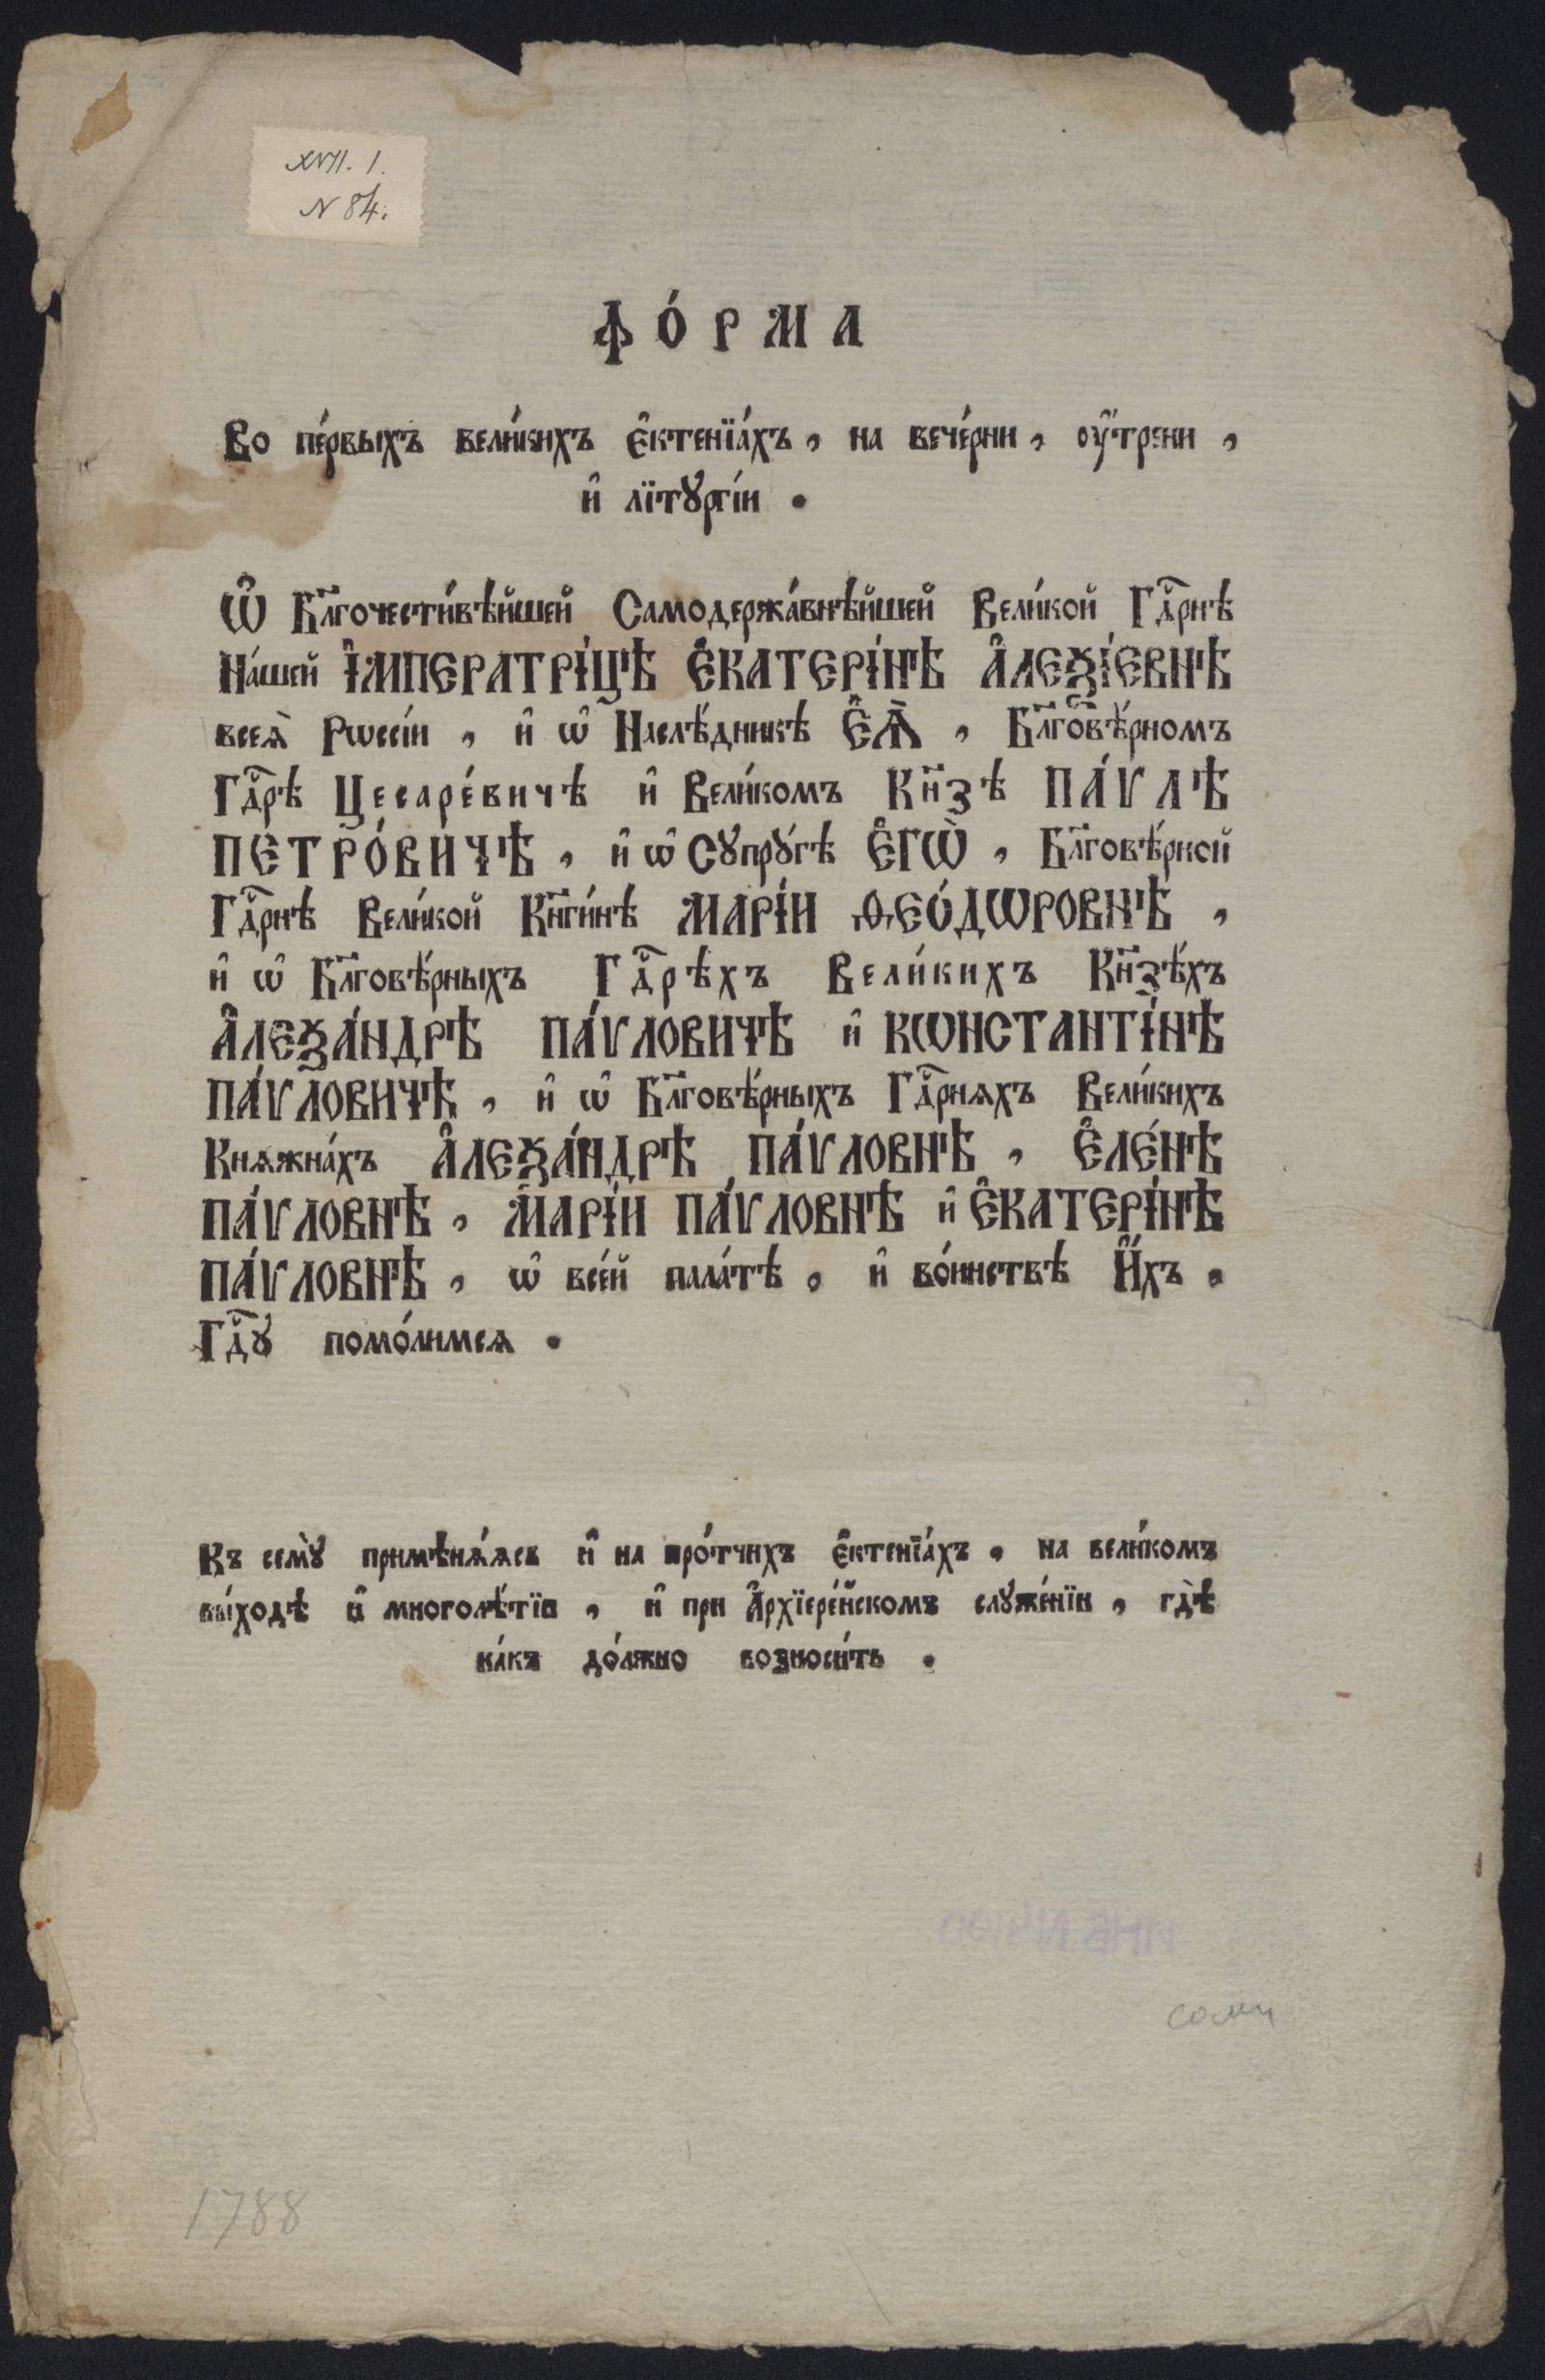 XVII. 1.
N 84.
Фо́рма
Во пе́рвыхъ вели́кихъ є҆ктенїа́хъ, на вече́рни, ᲂу҆́трени,
и҆ лїтꙋргі́и.
Ѡ҆ Бл҃гочести́вѣйшей Самодержа́внѣйшей Вели́кой Гдⷭ҇рнѣ
на́шей І҆МПЕРАТРІ́ЦѢ Є҆КАТЕРІ́НѢ А҆ЛЕѮІ́ЕВНѢ
всеѧ̀ Рѡссі́и, и҆ ѡ҆ Наслѣ́дникѣ Є҆Ѧ̀, Бл҃говѣ́рномъ
Гдⷭ҇рѣ Цесаре́вичѣ и҆ Вели́комъ Кн҃зѣ ПА́ѴЛѢ
ПЕТРО́ВИЧѢ, и҆ ѡ҆ Сꙋпрꙋ́гѣ Є҆ГѠ̀, Бл҃говѣ́рной
Гдⷭ҇рнѣ Вели́кой Кн҃ги́нѣ МАРІ́И ѲЕО́ДѠРОВНѢ,
и҆ ѡ҆ Бл҃говѣ́рныхъ Гдⷭ҇рѣхъ Вели́кихъ Кн҃зѣ́хъ
А҆ЛЕѮА́НДРѢ ПА́ѴЛОВИЧѢ и҆ КѠНСТАНТІ́НѢ
ПА́ѴЛОВИЧѢ, и҆ ѡ҆ Бл҃говѣ́рныхъ Гдⷭ҇рнѧхъ Вели́кихъ
Кнѧжна́хъ А҆ЛЕѮА́НДРѢ ПА́ѴЛОВНѢ, Є҆ЛЕ́НѢ
ПА́ѴЛОВНѢ, МАРІ́И ПА́ѴЛОВНѢ и҆ Є҆КАТЕРІ́НѢ
ПА́ѴЛОВНѢ, ѡ҆ все́й пала́тѣ, и҆ во́инствѣ И҆́хъ,
Гдⷭ҇ꙋ помо́лимсѧ.
Къ семꙋ̀ примѣнѧ́ѧсь и҆ на про́тчихъ є҆ктенїа́хъ, на вели́комъ
вы́ходѣ и҆ многолѣ́тїи, и҆ при А҆рхїере́йскомъ слꙋже́нїи, гдѣ̀
ка́къ до́лжно возноси́ть.
1788